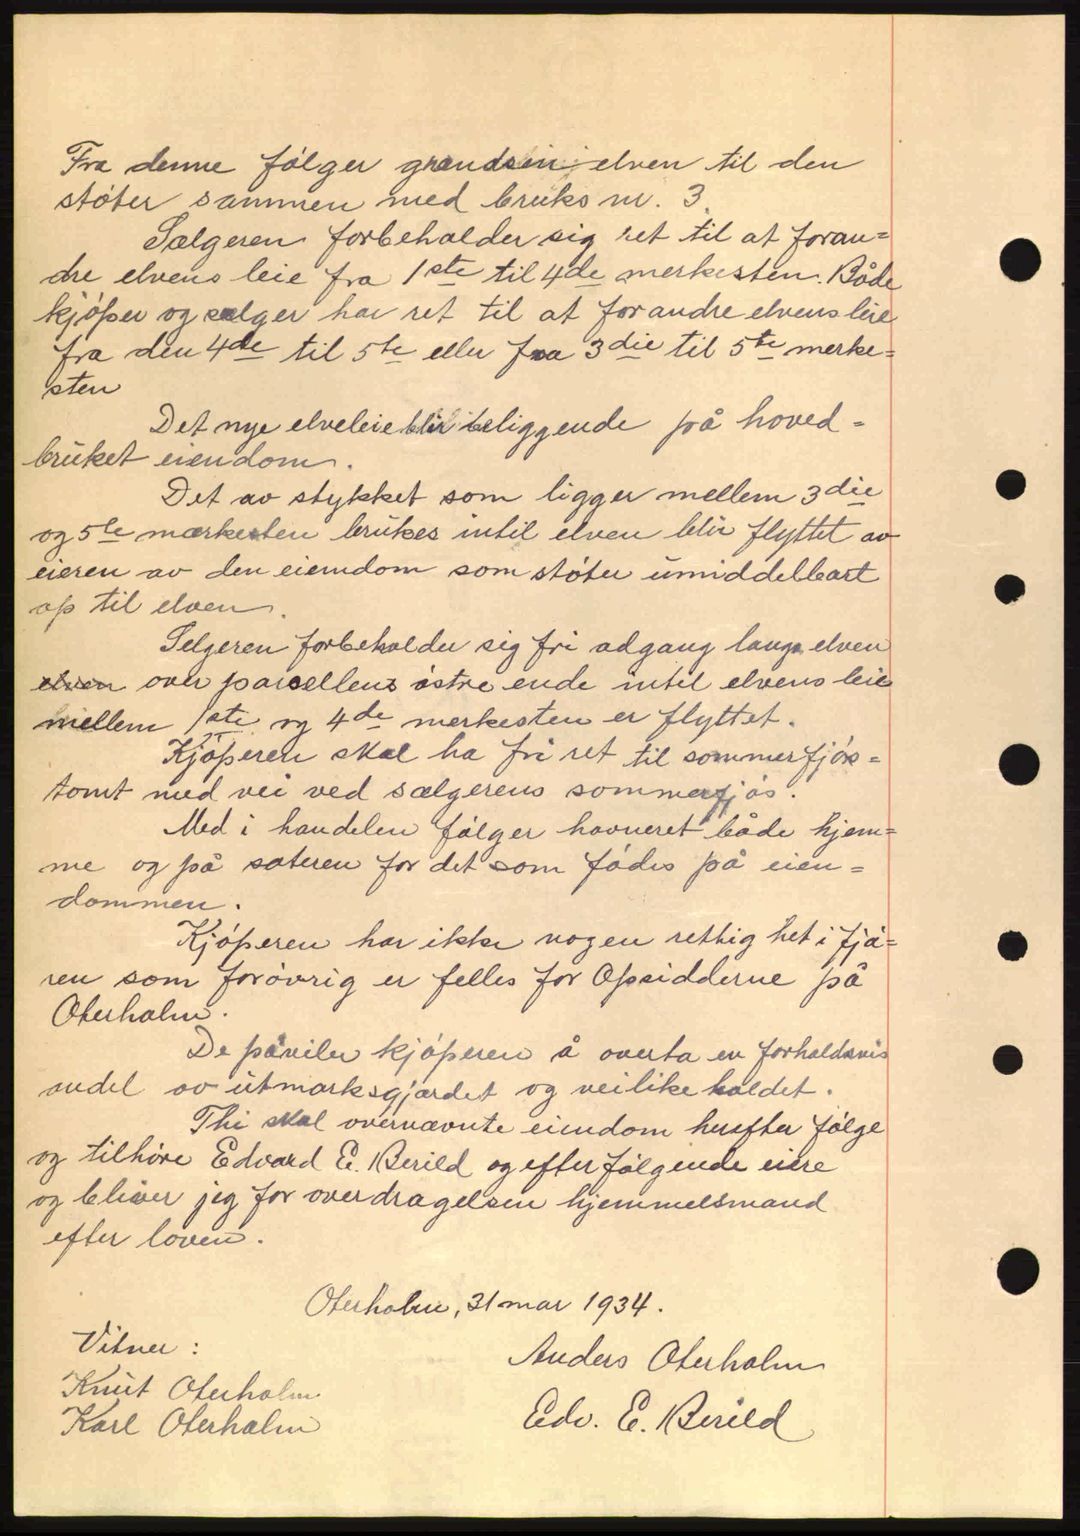 Fra denne følger grændsen elven til den
støter sammen med bruks nr. 3.
Sælgeren forbeholder sig ret til at foran=
dre elvens leie fra 1ste til 4de merkesten. Både
kjøper og sælger har ret til at forandre elvens leie
fra den 4de til 5te eller fra 3die til 5te merke=
sten
Det nye elveleie blir beliggende på hoved=
bruket eiendom.
Det av stykket som ligger mellem 3die
og 5te mærkesten brukes intil elven blir flyttet av
eieren av den eiendom som støter umiddelbart
op til elven.
Selgeren forbeholder sig fri adgang langs elven
elven over parsellens østre ende intil elvens leie
mellem 1ste og 4de merkesten er flyttet.
Kjøperen skal ha fri ret til sommerfjøs=
tomt med vei ved sælgerens sommerfjøs.
Med i handelen følger havneret både hjem=
me og på sæteren for det som fødes på eien=
dommen.
Kjøperen har ikke nogen rettighet i fjæ=
ren som forøvrig er felles for Opsidderne på
Oterholm.
De påviler kjøperen å overta en forholdsvis
andel av utmarksgjærdet og veilikeholdet.
Thi skal overnævnte eiendom herefter følge
og tilhøre Edvard E. Berild og efterfølgende eiere
og bliver jeg for overdragelsen hjemmelsmand
efter loven.
Oterholm, 31 mar 1934.
Vitner :
Anders Oterholm
Knut Oterholm
Karl Oterholm
Edv. E. Berild